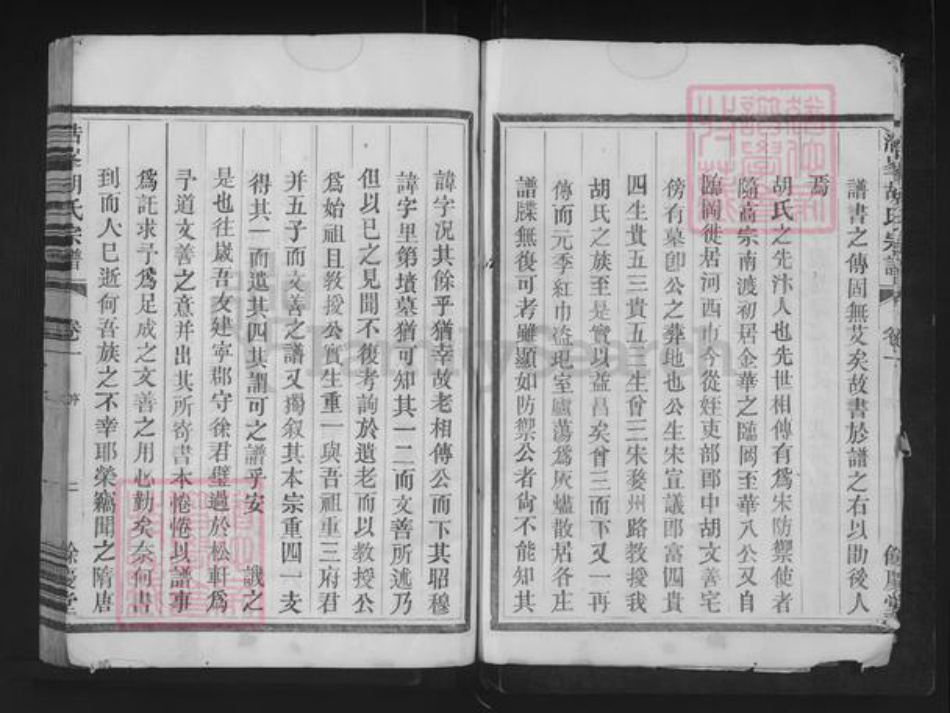 胡氏宗譜
卷一
餘慶堂
譜書之傳固無艾矣故書於譜之右以勖後人
焉
胡氏之先汴人也先世相傳有爲宋防禦使者
隨高宗南渡初居金華之臨岡至華八公又自
臨岡徙居河西巾今從姪吏部郎中胡文善宅
傍有墓卽公之葬地也公生宋宣議郎富四貴
四生貴五三貴五三生曾三宋婺州路教授我
胡氏之族至是實以益昌矣曾三而下又一再
傳而元季紅巾盜起室廬蕩爲灰燼散居各庄
譜牒無復可考雖顯如防禦公者尙不能知其
諱字况其餘乎猶幸故老相傳公而下其昭穆
諱字里第墳墓猶可知其一二而文善所述乃
但以已之見聞不復考詢於遺老而以教授公
爲始祖且教授公實生重一與吾祖重三府君
并五子而文善之譜又獨叙其本宗重四一支
得其一而遺其四其謂可之譜乎安 譏之
是也往嵗吾友建寧郡守徐君璧過於松軒爲
予道文善之意并出其所寄書本惓惓以譜事
爲託求予爲足成之文善之用心勤矣奈何書
到而人已逝何吾族之不幸耶榮竊聞之隋唐
胡氏宗譜
卷一
序
二
餘慶堂